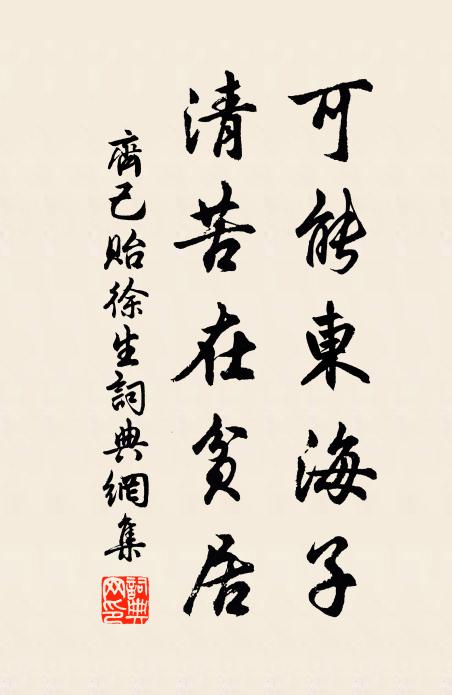 可能東海子
清苦在貧居
齊己貽徐生詞典網集
詞典網印